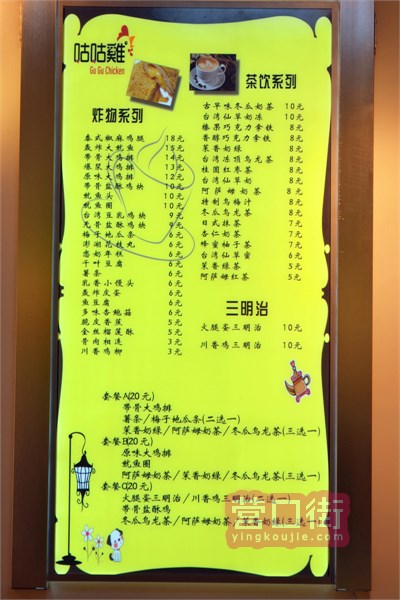 咕咕雞
Gu Gu Chicken
炸物系列
泰式椒麻鸡腿 18元
轰炸大鱿鱼 15元
带骨大鸡排 14元
爆浆大鸡排 13元
原味大鸡排 12元
带骨盐酥鸡块 10元
鱿鱼头 10元
鱿鱼圈 10元
台湾豆乳鸡块 9元
无骨盐酥鸡块 9元
梅子地瓜条 6元
澎湖花枝丸 6元
恋奶年糕 6元
千叶豆腐 6元
薯条 6元
乳香小馒头 6元
轰炸皮蛋 6元
鱼豆腐 6元
多味杏鲍菇 6元
脆皮香蕉 5元
金丝榴莲酥 5元
骨肉相连 3元
川香鸡柳 3元
茶饮系列
古早味冬瓜奶茶 10元
台湾仙草奶冻 10元
榛果巧克力拿铁 8元
香醇巧克力拿铁 8元
茉香奶绿 8元
台湾冻顶乌龙茶 8元
桂圆红枣茶 8元
台湾仙草奶 8元
阿萨姆奶茶 8元
特制乌梅汁 8元
冬瓜乌龙茶 8元
日式抹茶 7元
杏仁奶茶 7元
蜂蜜柚子茶 7元
台湾仙草蜜 6元
茉香绿茶 5元
阿萨姆红茶 5元
三明治
火腿蛋三明治 10元
川香鸡三明治 10元
套餐A(20元)
带骨大鸡排
薯条/梅子地瓜条(二选一)
茉香奶绿/阿萨姆奶茶/冬瓜乌龙茶(三选一)
套餐B(20元)
原味大鸡排
鱿鱼圈
阿萨姆奶茶/茉香奶绿/冬瓜乌龙茶(三选一)
套餐C(20元)
火腿蛋三明治/川香鸡三明治(二选一)
带骨盐酥鸡
冬瓜乌龙茶/阿萨姆奶茶/茉香奶绿(三选一)
营口街
yingkoujie.com